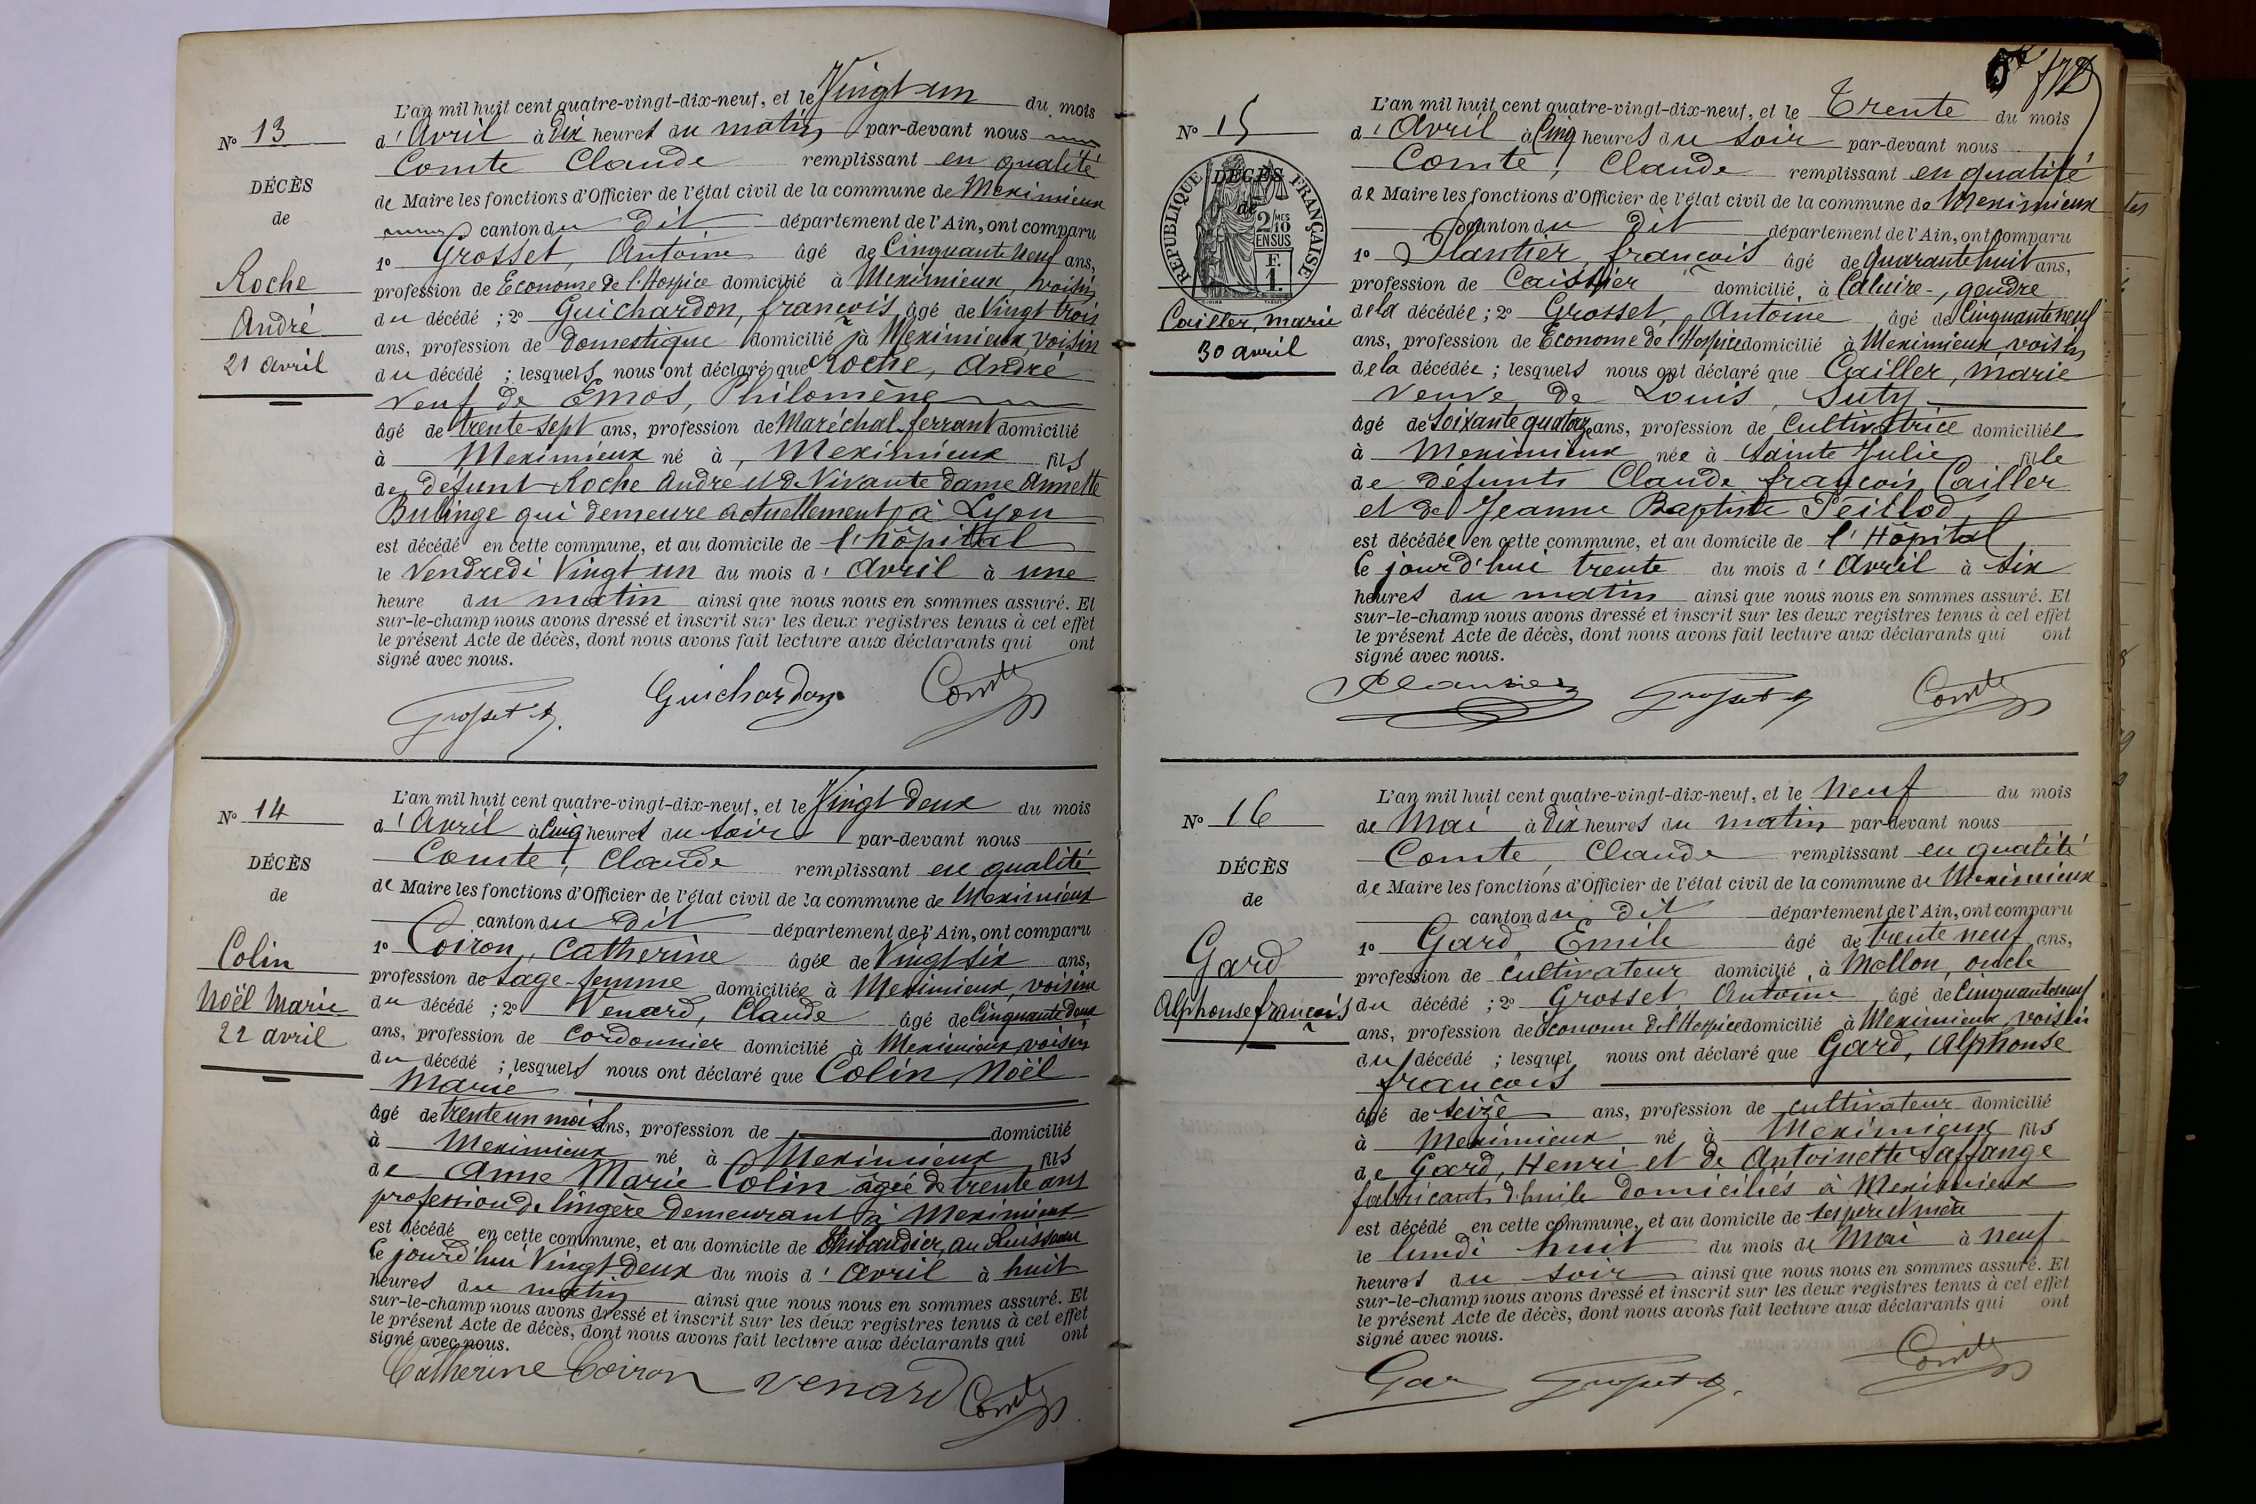 N° 13
DÉCÈS
de
Roche
André
21 avril
L'an mil huit cent quatre-vingt-dix-neuf, et le Vingt un du mois
d'Avril à Dix heures du matin par-devant nous
Comte Claude remplissant en qualité
de Maire les fonctions d'Officier de l'état civil de la commune de Meximieux
canton du dit département de l'Ain, ont comparu
1° Grosset, Antoine âgé de Cinquante neuf ans,
profession de Econome de l'Hospice domicilié à Meximieux, voisin
du décédé ; 2° Guichardon, françois âgé de Vingt trois
ans, profession de domestique domicilié à Meximieux, voisin
du décédé ; lesquels nous ont déclaré que Roche, André
veuf de Emos, Philomène
âgé de trente-sept ans, profession de Maréchal-ferrant domicilié
à Meximieux né à Meximieux fils
de défunt Roche André et de Vivante dame Annette
Bulinge qui demeure actuellement à Lyon
est décédé en cette commune, et au domicile de l'hôpital
le Vendredi Vingt un du mois d'Avril à une
heure du matin ainsi que nous nous en sommes assuré. Et
sur-le-champ nous avons dressé et inscrit sur les deux registres tenus à cet effet
le présent Acte de décès, dont nous avons fait lecture aux déclarants qui ont
signé avec nous.
Grosset A. Guichardon Comte
N° 14
DÉCÈS
de
Colin
Noël Marie
22 avril
L'an mil huit cent quatre-vingt-dix-neuf, et le Vingt deux du mois
d'Avril à Cinq heures du soir par-devant nous
Comte, Claude remplissant en qualité
de Maire les fonctions d'Officier de l'état civil de la commune de Meximieux
canton du dit département de l'Ain, ont comparu
1° Coiron, Catherine âgée de Vingt six ans,
profession de Sage-femme domiciliée à Meximieux, voisine
du décédé ; 2° Venard, Claude âgé de Cinquante deux
ans, profession de cordonnier domicilié à Meximieux, voisin
du décédé ; lesquels nous ont déclaré que Colin, Noël
Marie
âgé de trente un mois ans, profession de domicilié
à Meximieux né à Meximieux fils
de Anne Marie Colin âgée de trente ans
profession de lingère demeurant à Meximieux
est décédé en cette commune, et au domicile de Thibaudier, au Ruisseau
Ce jourd'hui Vingt deux du mois d'Avril à huit
heures du matin ainsi que nous nous en sommes assuré. Et
sur-le-champ nous avons dressé et inscrit sur les deux registres tenus à cet effet
le présent Acte de décès, dont nous avons fait lecture aux déclarants qui ont
signé avec nous.
Catherine Coiron Venard Comte
N° 15
RÉPUBLIQUE FRANÇAISE
DÉCÈS
de
2/10 MES
EN SUS
F.
1.
Cailler, marie
30 avril
L'an mil huit cent quatre-vingt-dix-neuf, et le Trente du mois
d'Avril à Cinq heures du soir par-devant nous
Comte, Claude remplissant en qualité
de Maire les fonctions d'Officier de l'état civil de la commune de Meximieux
canton du dit département de l'Ain, ont comparu
1° Plantier, françois âgé de quarante huit ans,
profession de Caissier domicilié à Caluire, gendre
de la décédée ; 2° Grosset, Antoine âgé de Cinquante neuf
ans, profession de Econome de l'Hospice domicilié à Meximieux, voisin
de la décédée ; lesquels nous ont déclaré que Cailler, Marie
veuve de Louis, Suty
âgé de soixante quatorze ans, profession de Cultivatrice domiciliée
à Meximieux née à Sainte Julie fille
de défunts Claude françois Cailler
et de Jeanne Baptiste Peillod
est décédée en cette commune, et au domicile de l'Hôpital
Ce jourd'hui trente du mois d'Avril à six
heures du matin ainsi que nous nous en sommes assuré. Et
sur-le-champ nous avons dressé et inscrit sur les deux registres tenus à cet effet
le présent Acte de décès, dont nous avons fait lecture aux déclarants qui ont
signé avec nous.
Plantier Grosset A Comte
N° 16
DÉCÈS
de
Gard
Alphonse françois
L'an mil huit cent quatre-vingt-dix-neuf, et le Neuf du mois
de Mai à Dix heures du matin par-devant nous
Comte, Claude remplissant en qualité
de Maire les fonctions d'Officier de l'état civil de la commune de Meximieux
canton du dit département de l'Ain, ont comparu
1° Gard, Emile âgé de trente neuf ans,
profession de cultivateur domicilié à Mollon, oncle
du décédé ; 2° Grosset Antoine âgé de Cinquante neuf
ans, profession de économe de l'Hospice domicilié à Meximieux, voisin
du décédé ; lesquel nous ont déclaré que Gard, Alphonse
françois
âgé de seize ans, profession de cultivateur domicilié
à Meximieux né à Meximieux fils
de Gard, Henri et de Antoinette Saffange
fabricants d'huile domiciliés à Meximieux
est décédé en cette commune, et au domicile de ses père et mère
le lundi huit du mois de Mai à neuf
heures du soir ainsi que nous nous en sommes assuré. Et
sur-le-champ nous avons dressé et inscrit sur les deux registres tenus à cet effet
le présent Acte de décès, dont nous avons fait lecture aux déclarants qui ont
signé avec nous.
Gar Grosset A. Comte